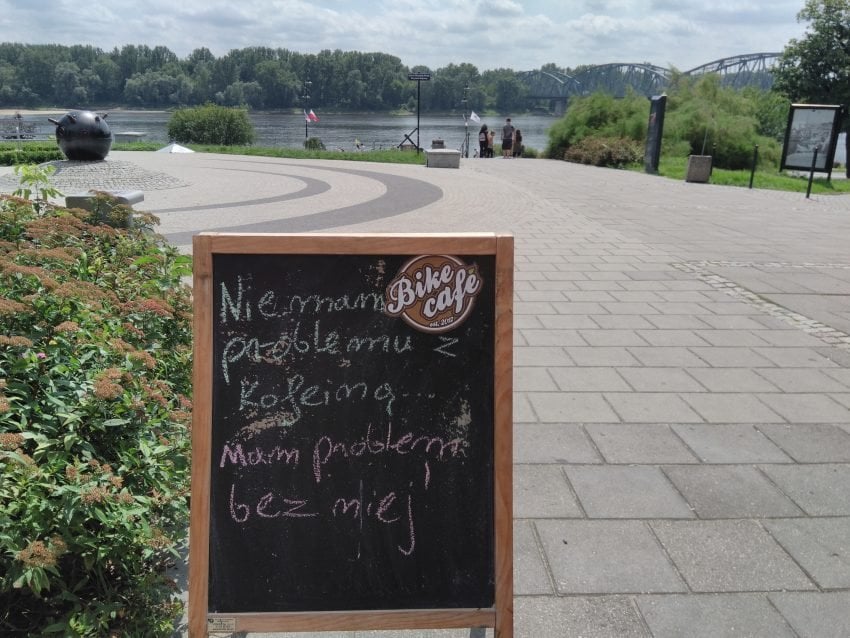 Nie mam
problemu z
Kofeiną...
Mam problem
bez niej
Bike
café
est. 2012